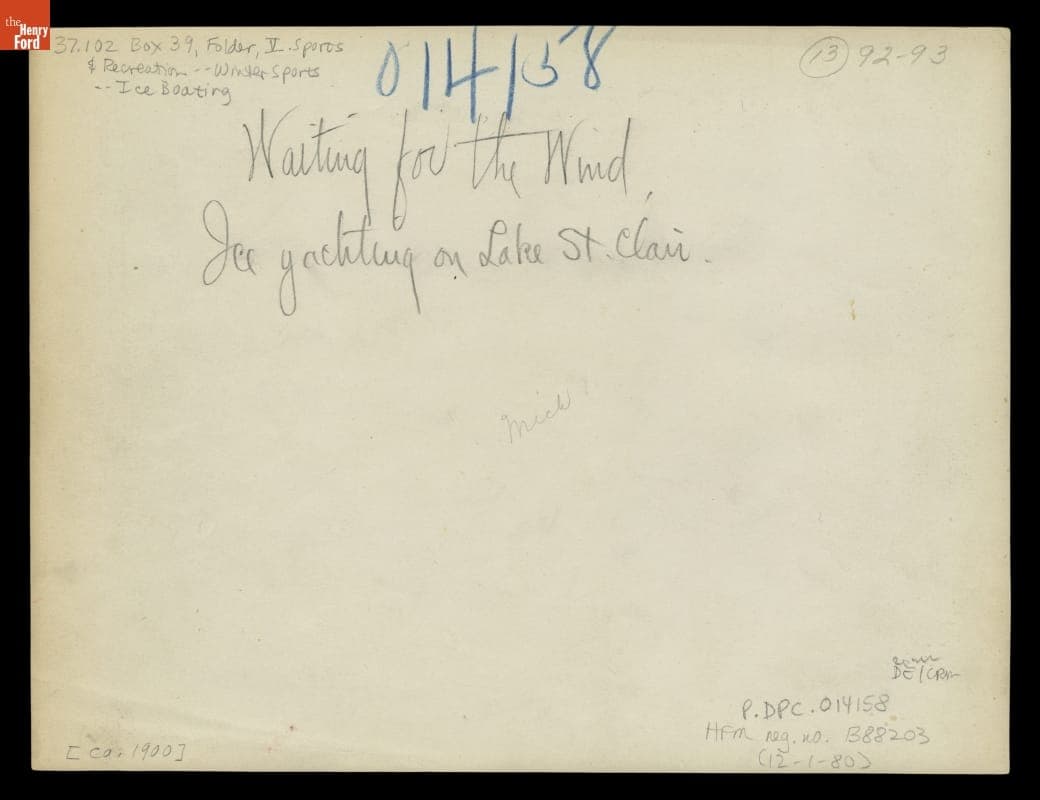 the
Henry
Ford
37.102 Box 39, Folder, V. Sports
& Recreation -- Winter Sports
-- Ice Boating
014158
13 92-93
Waiting for the Wind,
Ice yachting on Lake St. Clair.
Mich
DE/CRM
P.DPC.014158
HFM neg. no. B88203
(12-1-80)
[ca. 1900]